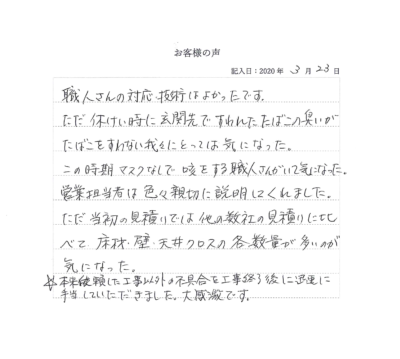 お客様の声
記入日：2020 年 3 月 23 日
職人さんの対応、技術はよかったです。
ただ 休けい時に玄関先ですわれたたばこの臭いが
たばこをすわない我々にとっては気になった。
この時期マスクなしで咳をする職人さんがいて気になった。
営業担当者は色々親切に説明してくれました。
ただ当初の見積りでは他の数社の見積りに比
べて 床材・壁・天井クロスの各数量が多いのが
気になった。
依頼した工事以外の不具合を工事終了後に迅速に
手当していただきました。大感激です。